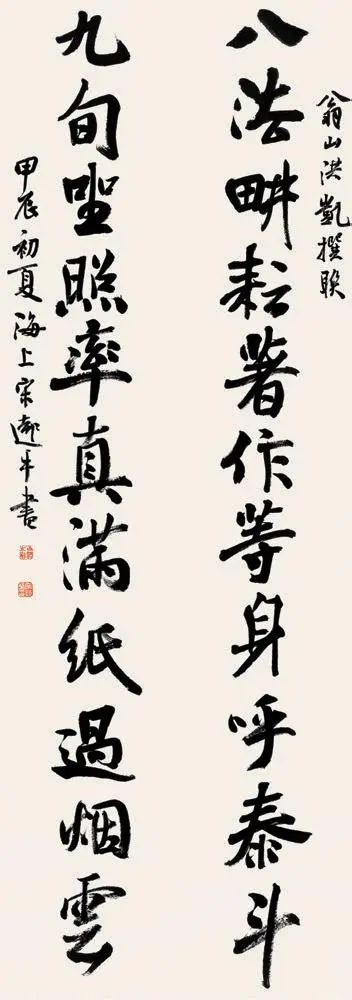 翁山洪凱撰联
八法畊耘著作等身呼泰斗
九旬聖照率真滿紙過烟雲
甲辰初夏海上宋牛書